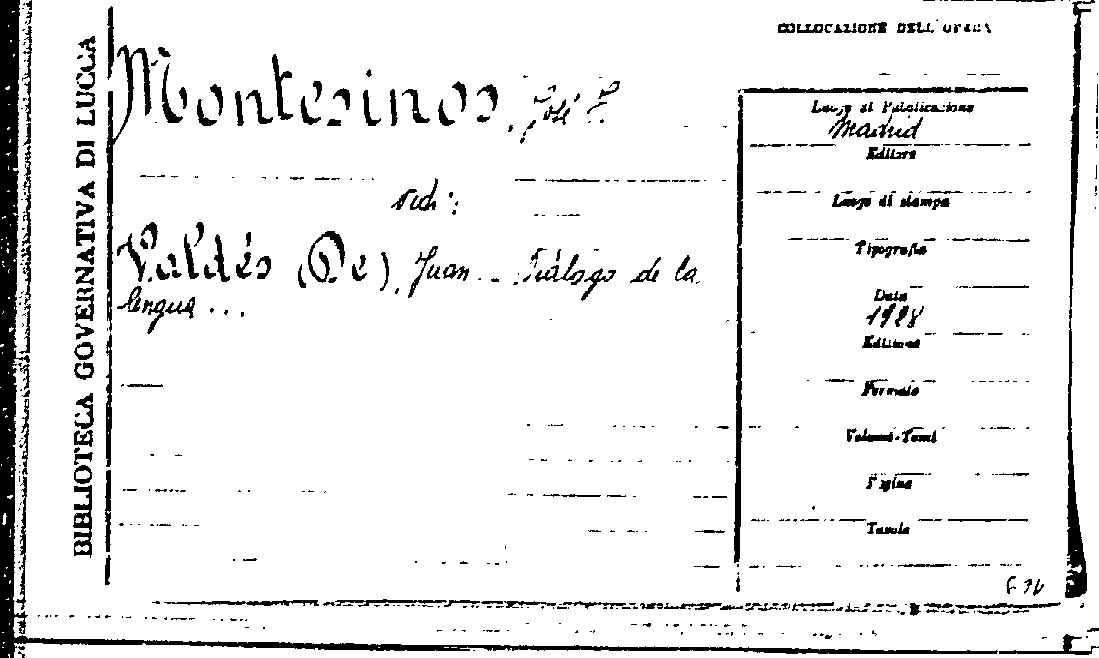 BIBLIOTECA GOVERNATIVA DI LUCCA
COLLOCAZIONE DELL'OPERA
Montesinos, José F.
vedi:
Valdés (De), Juan - Diálogo de la
lengua...
Luogo di Pubblicazione
Madrid
Editore
Luogo di stampa
Tipografia
Data
1928
Edizione
Formato
Volumi-Tomi
Pagine
Tavole